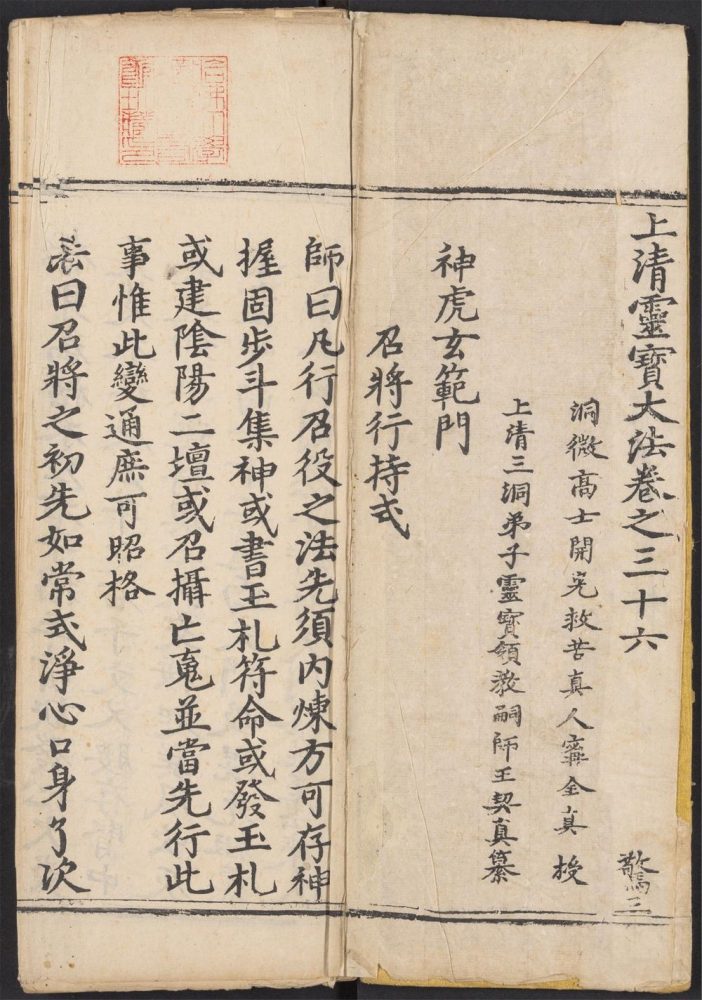 上清靈寳大法卷之三十六
驚三
洞微高士開光救苦真人寗全真授
上清三洞弟子靈寳領教嗣師王契真纂
神虎玄範門
召將行持式
師曰凡行召役之法先須内煉方可存神
握固步斗集神或書玉札符命或發玉札
或建隂陽二壇或召攝亡䰟並當先行此
事惟此變通庶可昭格
法曰召將之初先如常式淨心口身了次